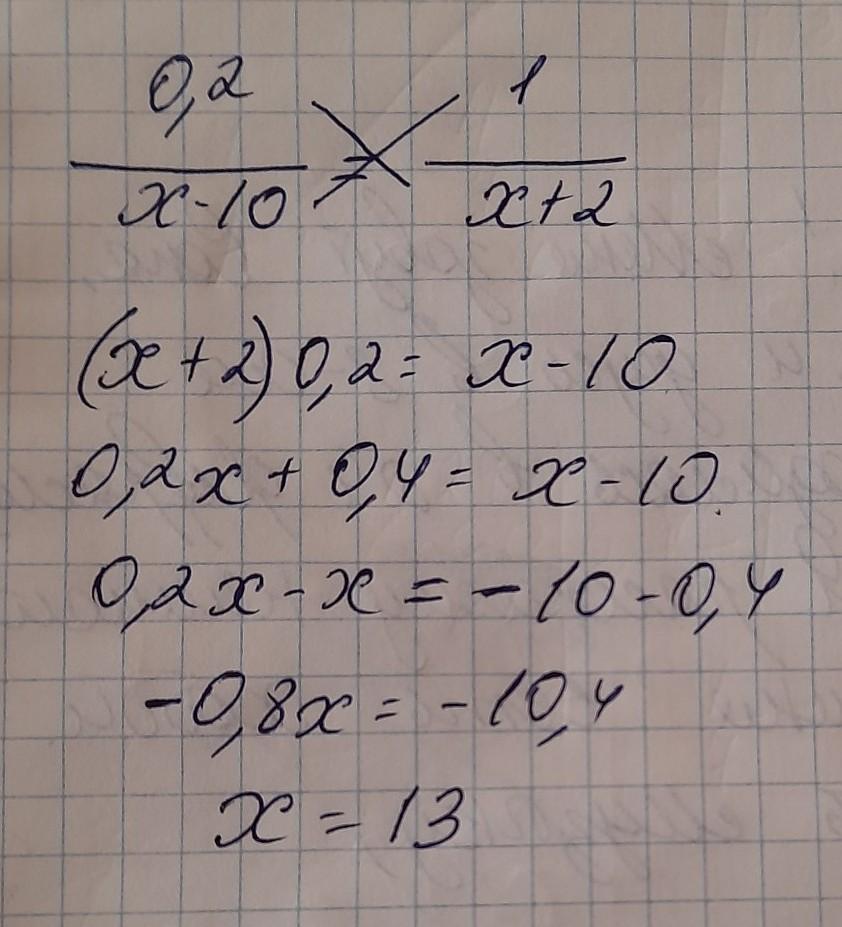 0,2 / x-10 = 1 / x+2
(x+2)0,2= x-10
0,2x+0,4= x-10
0,2x-x=-10-0,4
-0,8x=-10,4
x=13